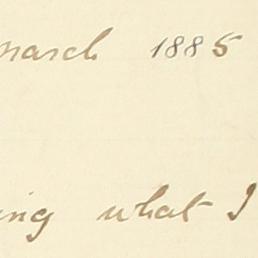 march 1885
ing what I